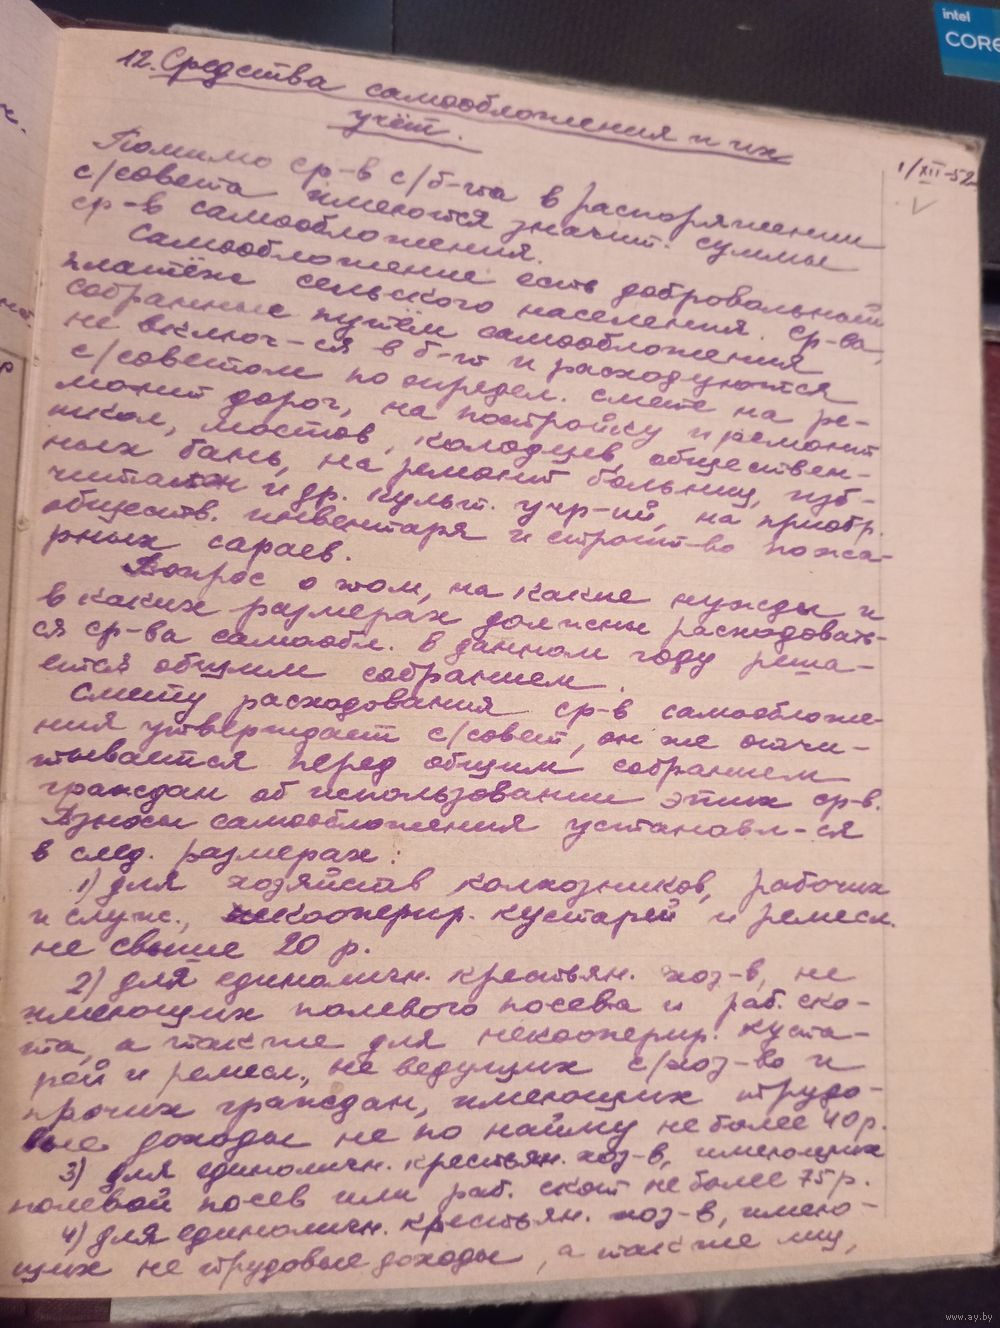 intel
CORE
12. Средства самообложения и их
учёт.
1/XII-52
Помимо ср-в с/б-та в распоряжении
с/совета имеются значит. суммы
ср-в самообложения.
Самообложение есть добровольный
платёж сельского населения. Ср-ва,
собранные путём самообложения
не включ-ся в б-т и расходуются
с/советом по определ. смете на ре-
монт дорог, на постройку и ремонт
школ, мостов, колодцев обществен-
ных бань, на ремонт больниц, изб-
читален и др. культ. учр-ий, на приобр.
обществ. инвентаря и строит-во пожа-
рных сараев.
Вопрос о том, на какие нужды и
в каких размерах должны расходовать-
ся ср-ва самообл. в данном году реша-
ется общим собранием.
Смету расходования ср-в самообложе-
ния утверждает с/совет, он же отчи-
тывается перед общим собранием
граждан об использовании этих ср-в.
Взносы самообложения установл-ся
в след. размерах:
1) для хозяйств колхозников, рабочих
и служ., кооперир. кустарей и ремесл.
не свыше 20 р.
2) для единоличн. крестьян. хоз-в, не
имеющих полевого посева и раб. ско-
та, а также для некооперир. куста-
рей и ремесл., не ведущих с/хоз-во и
прочих граждан, имеющих трудо-
вые доходы не по найму не более 40 р.
3) для единоличн. крестьян. хоз-в, имеющих
полевой посев или раб. скот не более 75 р.
4) для единоличн. крестьян. хоз-в, имею-
щих не трудовые доходы, а также лиц,
www.ay.by